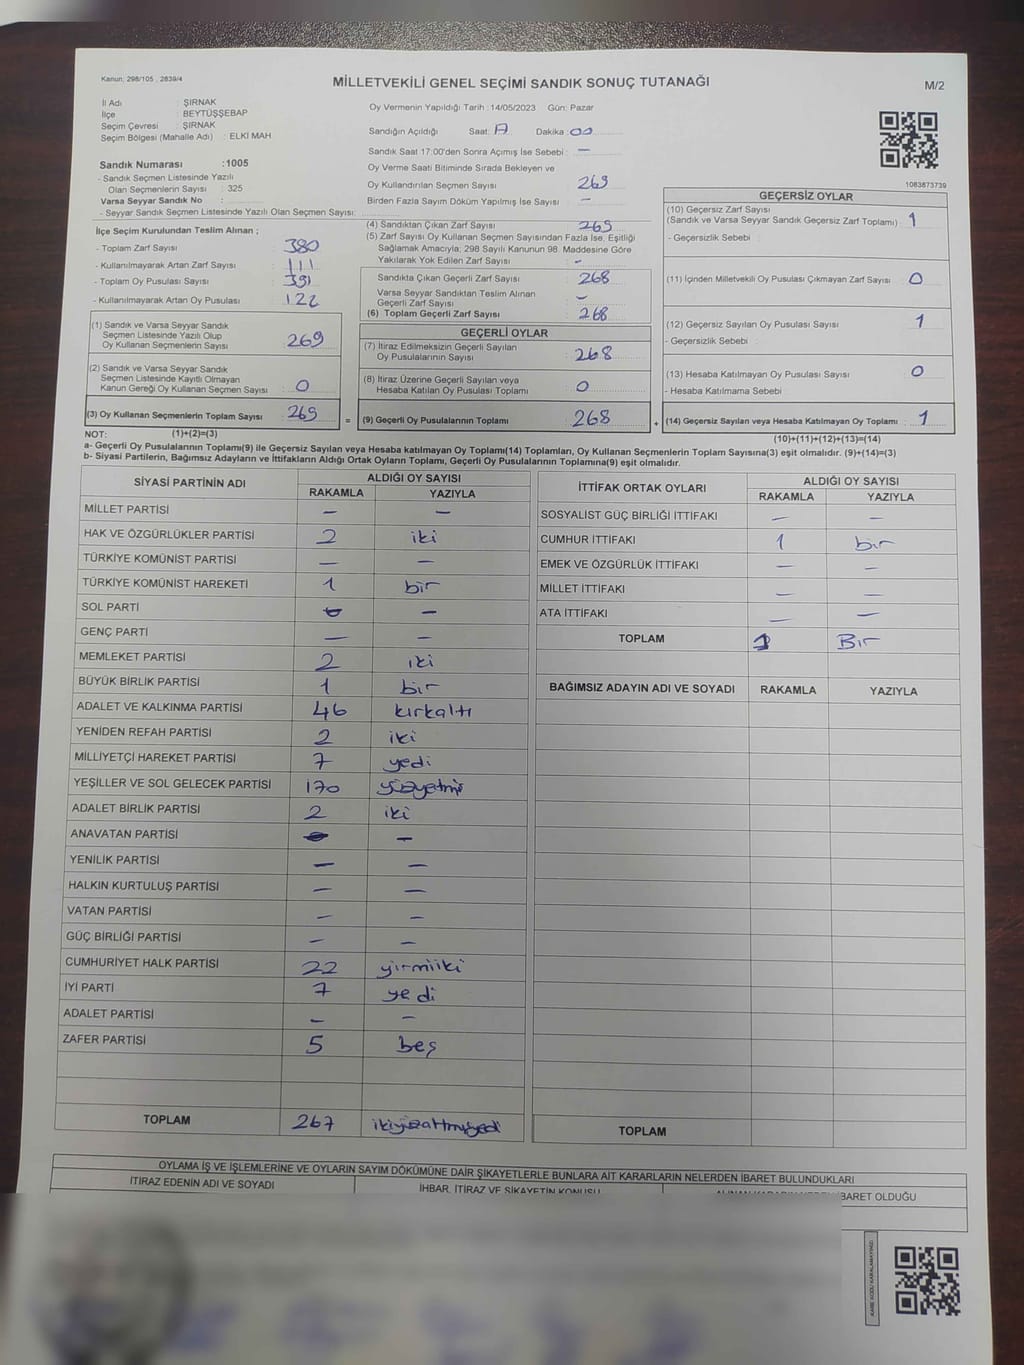 Kanun: 298/105 , 2839/4
MİLLETVEKİLİ GENEL SEÇİMİ SANDIK SONUÇ TUTANAĞI
M/2
İl Adı : ŞIRNAK
İlçe : BEYTÜŞŞEBAP
Seçim Çevresi : ŞIRNAK
Seçim Bölgesi (Mahalle Adı) : ELKİ MAH
Sandık Numarası :1005
- Sandık Seçmen Listesinde Yazılı
Olan Seçmenlerin Sayısı : 325
Varsa Seyyar Sandık No :
- Seyyar Sandık Seçmen Listesinde Yazılı Olan Seçmen Sayısı:
Oy Vermenin Yapıldığı Tarih : 14/05/2023 Gün: Pazar
Sandığın Açıldığı Saat: 17 Dakika : 00
Sandık Saat 17:00'den Sonra Açımış İse Sebebi : –
Oy Verme Saati Bitiminde Sırada Bekleyen ve
Oy Kullandırılan Seçmen Sayısı 269
Birden Fazla Sayım Döküm Yapılmış İse Sayısı –
1083873739
İlçe Seçim Kurulundan Teslim Alınan ;
- Toplam Zarf Sayısı 380
- Kullanılmayarak Artan Zarf Sayısı 111
- Toplam Oy Pusulası Sayısı 391
- Kullanılmayarak Artan Oy Pusulası 122
(1) Sandık ve Varsa Seyyar Sandık
Seçmen Listesinde Yazılı Olup
Oy Kullanan Seçmenlerin Sayısı 269
(2) Sandık ve Varsa Seyyar Sandık
Seçmen Listesinde Kayıtlı Olmayan
Kanun Gereği Oy Kullanan Seçmen Sayısı 0
(3) Oy Kullanan Seçmenlerin Toplam Sayısı 269 =
(4) Sandıktan Çıkan Zarf Sayısı 269
(5) Zarf Sayısı Oy Kullanan Seçmen Sayısından Fazla İse, Eşitliği
Sağlamak Amacıyla; 298 Sayılı Kanunun 98. Maddesine Göre
Yakılarak Yok Edilen Zarf Sayısı : -
Sandıkta Çıkan Geçerli Zarf Sayısı 268
Varsa Seyyar Sandıktan Teslim Alınan
Geçerli Zarf Sayısı –
(6) Toplam Geçerli Zarf Sayısı : 268
GEÇERLİ OYLAR
(7) İtiraz Edilmeksizin Geçerli Sayılan
Oy Pusulalarının Sayısı : 268
(8) İtiraz Üzerine Geçerli Sayılan veya
Hesaba Katılan Oy Pusulası Toplamı : 0
(9) Geçerli Oy Pusulalarının Toplamı : 268 +
GEÇERSİZ OYLAR
(10) Geçersiz Zarf Sayısı
(Sandık ve Varsa Seyyar Sandık Geçersiz Zarf Toplamı) : 1
- Geçersizlik Sebebi :
(11) İçinden Milletvekili Oy Pusulası Çıkmayan Zarf Sayısı : 0
(12) Geçersiz Sayılan Oy Pusulası Sayısı : 1
- Geçersizlik Sebebi :
(13) Hesaba Katılmayan Oy Pusulası Sayısı : 0
- Hesaba Katılmama Sebebi :
(14) Geçersiz Sayılan veya Hesaba Katılmayan Oy Toplamı : 1
NOT: (1)+(2)=(3)
(10)+(11)+(12)+(13)=(14)
a- Geçerli Oy Pusulalarının Toplamı(9) ile Geçersiz Sayılan veya Hesaba katılmayan Oy Toplamı(14) Toplamları, Oy Kullanan Seçmenlerin Toplam Sayısına(3) eşit olmalıdır. (9)+(14)=(3)
b- Siyasi Partilerin, Bağımsız Adayların ve İttifakların Aldığı Ortak Oyların Toplamı, Geçerli Oy Pusulalarının Toplamına(9) eşit olmalıdır.
SİYASİ PARTİNİN ADI
ALDIĞI OY SAYISI
RAKAMLA YAZIYLA
MİLLET PARTİSİ – –
HAK VE ÖZGÜRLÜKLER PARTİSİ 2 iki
TÜRKİYE KOMÜNİST PARTİSİ – –
TÜRKİYE KOMÜNİST HAREKETİ 1 bir
SOL PARTİ – –
GENÇ PARTİ – –
MEMLEKET PARTİSİ 2 iki
BÜYÜK BİRLİK PARTİSİ 1 bir
ADALET VE KALKINMA PARTİSİ 46 kırkaltı
YENİDEN REFAH PARTİSİ 2 iki
MİLLİYETÇİ HAREKET PARTİSİ 7 yedi
YEŞİLLER VE SOL GELECEK PARTİSİ 170 yüzyetmiş
ADALET BİRLİK PARTİSİ 2 iki
ANAVATAN PARTİSİ – –
YENİLİK PARTİSİ – –
HALKIN KURTULUŞ PARTİSİ – –
VATAN PARTİSİ – –
GÜÇ BİRLİĞİ PARTİSİ – –
CUMHURİYET HALK PARTİSİ 22 yirmiiki
İYİ PARTİ 7 yedi
ADALET PARTİSİ – –
ZAFER PARTİSİ 5 beş
TOPLAM 267 ikiyüzaltmışyedi
İTTİFAK ORTAK OYLARI
ALDIĞI OY SAYISI
RAKAMLA YAZIYLA
SOSYALİST GÜÇ BİRLİĞİ İTTİFAKI – –
CUMHUR İTTİFAKI 1 bir
EMEK VE ÖZGÜRLÜK İTTİFAKI – –
MİLLET İTTİFAKI – –
ATA İTTİFAKI – –
TOPLAM 1 Bir
BAĞIMSIZ ADAYIN ADI VE SOYADI RAKAMLA YAZIYLA
TOPLAM
OYLAMA İŞ VE İŞLEMLERİNE VE OYLARIN SAYIM DÖKÜMÜNE DAİR ŞİKAYETLERLE BUNLARA AİT KARARLARIN NELERDEN İBARET BULUNDUKLARI
İTİRAZ EDENİN ADI VE SOYADI
İHBAR, İTİRAZ VE ŞİKAYETİN KONUSU
İBARET OLDUĞU
KARE KODU KARALAMAYINIZ.